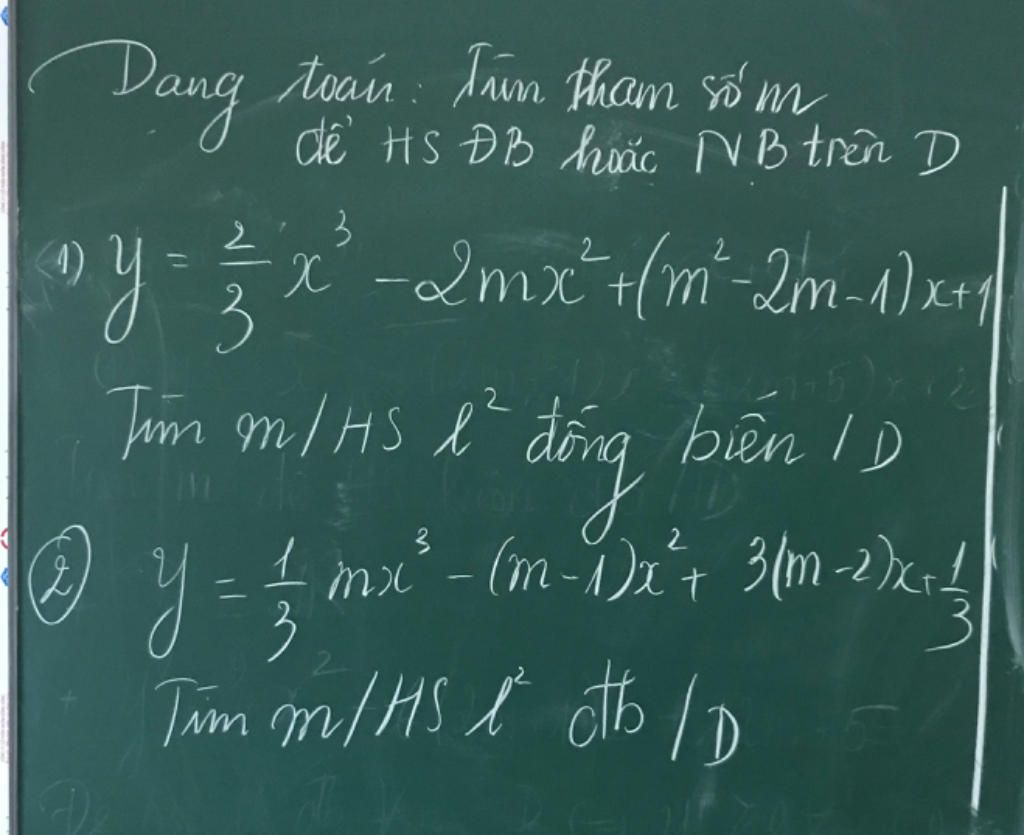 Dạng toán: Tìm tham số m
để HS ĐB hoặc NB trên D
1) y = 2/3 x³ - 2mx² + (m² - 2m - 1)x + 1
Tìm m / HS l² đồng biến / D
② y = 1/3 mx³ - (m - 1)x² + 3(m - 2)x + 1/3
Tìm m / HS l² đb / D